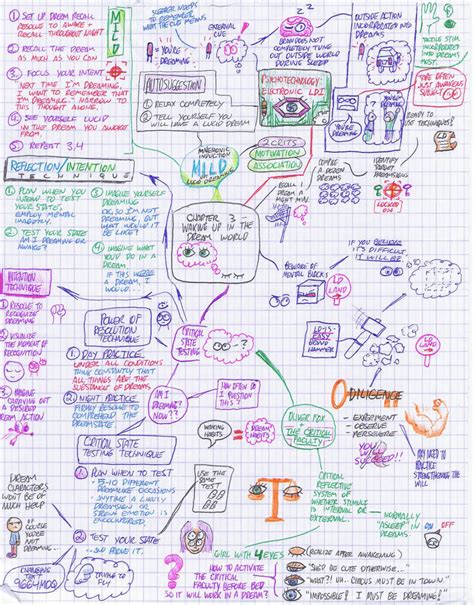 ① SET UP DREAM RECALL
RESOLVE TO AWAKE +
RECALL THROUGHOUT NIGHT
② RECALL THE DREAM
AS MUCH AS YOU CAN
③ FOCUS YOUR INTENT
NEXT TIME I'M DREAMING,
I WANT TO REMEMBER THAT
I'M DREAMING. NARROW TO
THOUGHT ALONE.
④ SEE YOURSELF LUCID
IN THE DREAM YOU AWOKE
FROM.
⑤ REPEAT 3,4
MILD
TO REMEMBER
YOU'RE DREAMING
EXTERNAL
CUE
BRAIN DOES NOT
COMPLETELY TUNE
OUT OUTSIDE WORLD
DURING SLEEP
OUTSIDE ACTION
INCORPORATED INTO
DREAMS
TACTILE STIM.
INCORPORATED
INTO DREAMS
MORE OFTEN
JUST AWAKENS
AUTOSUGGESTION
① RELAX COMPLETELY
② TELL YOURSELF YOU
WILL HAVE A LUCID DREAM
PSYCHOTECHNOLOGY:
ELECTRONIC LDI
YOU'RE
DREAMING
READY TO
USE TECHNIQUES?
MNEMONIC
INDUCTION
MILD
LUCID DREAMING
2 CRITS
MOTIVATION
ASSOCIATION
RECALL 1
DREAM A
NIGHT MIN.
COMPILE
A DOZEN
DREAMS
IDENTIFY
TARGET
DREAMSIGNS
LOCKED
ON
REFLECTION/INTENTION
TECHNIQUE
① PLAN WHEN YOU
INTEND TO TEST
YOUR STATE.
EMPLOY MENTAL
IMAGERY.
② TEST YOUR STATE
AM I DREAMING OR
AWAKE?
③ IMAGINE YOURSELF
DREAMING
OK, SO I'M NOT
DREAMING, BUT
WHAT WOULD IT
BE LIKE?
④ IMAGINE WHAT
YOU'D DO IN A
DREAM
IF THIS WERE
A DREAM, I
WOULD...
CHAPTER 3 -
WAKING UP IN THE
DREAM WORLD
IF YOU BELIEVE
IT'S DIFFICULT
IT WILL BE
BEWARE OF
MENTAL BLOCKS
LD
LAND
LD-IS-
EASY
BRAND
HAMMER
LD
LAND
INTENTION
TECHNIQUE
① RESOLVE TO
RECOGNIZE
DREAMING
② VISUALISE
THE MOMENT OF
RECOGNITION
③ IMAGINE
CARRYING OUT
A DESIRED
DREAM ACTION
POWER OF
RESOLUTION
TECHNIQUE
CRITICAL
STATE
TESTING
① DAY PRACTICE
UNDER ALL CONDITIONS
THINK CONSTANTLY THAT
ALL THINGS ARE THE
SUBSTANCE OF DREAMS
② NIGHT PRACTICE
FIRMLY RESOLVE TO
COMPREHEND THE
DREAM STATE
AM I
DREAMING?
NOW??
HOW OFTEN DO
I QUESTION
THIS??
WORKING
HABITS
DREAM
HABITS
OLIVER FOX
+ THE CRITICAL
FACULTY
DILIGENCE
- EXPERIMENT
OBSERVE
PERSEVERE
YOU WILL
SUCCEED!!
MAY NEED TO
PRACTICE
STRENGTHENING THE
WILL
CRITICAL STATE
TESTING TECHNIQUE
① PLAN WHEN TO TEST
5-10 DIFFERENT
PROMISED OCCASIONS
ANYTIME A
DREAMSIGN OR
STRONG EMOTION IS
ENCOUNTERED.
② TEST YOUR STATE
...SO PROVE IT.
USE THE
SAME
TEST
DREAM
CHARACTERS
WON'T BE OF
MUCH HELP
COURSE
YOU'RE
NOT
DREAMING.
CHANGING
TEXT
TRYING TO
FLY
CRITICAL
REFLECTIVE
SYSTEM OF
WHETHER STIMULI
IS INTERNAL OR
EXTERNAL.
NORMALLY
"ASLEEP" IN
DREAMS
ON
OFF
GIRL WITH 4 EYES
HOW TO ACTIVATE
THE CRITICAL
FACULTY BEFORE BED
SO IT WILL WORK IN A DREAM?
(REALIZE AFTER AWAKENING)
"SHE'D BE CUTE OTHERWISE..."
"WHAT?! UH.. CIRCUS MUST BE IN TOWN."
"IMPOSSIBLE! I MUST BE DREAMING!"